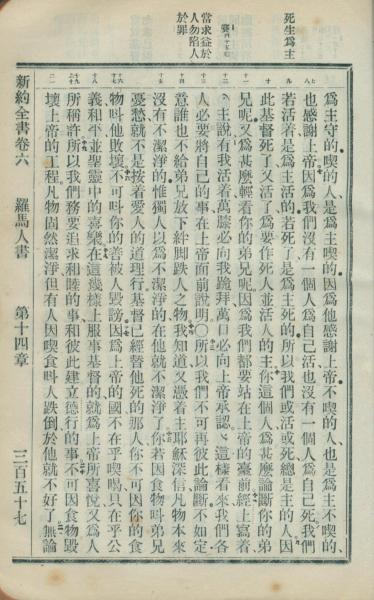 死生爲主
當求益於
人勿陷人
於罪
爲主守的喫的人、是爲主喫的、因爲他感謝上帝、不喫的人、也是爲主不喫的、
也感謝上帝、因爲我們沒有一個人爲自己活、也沒有一個人爲自己死、我們
若活着、是爲主活的、若死了、是爲主死的、所以我們或活或死、總是主的人、因
此基督死了、又活了、爲要作死人並活人的主、你這個人爲甚麼論斷你的弟
兄呢、又爲甚麼輕看你的弟兄呢、因爲我們都要站在上帝的臺前、經上寫着、
主說、有我活着、萬膝必向我跪拜、萬口必向上帝承認、這樣看來、我們各
人必要將自己的事在上帝面前說明、〇所以我們不可再彼此論斷、不如定
意誰也不給弟兄放下絆脚跌人之物、我知道、又憑着主耶穌深信、凡物本來
沒有不潔淨的、惟獨人以爲不潔淨的、在他就不潔淨了、你若因食物叫弟兄
憂愁、就不是按着愛人的道理行、基督已經替他死的那人、你不可因你的食
物叫他敗壞、不可叫你的善被人毀謗、因爲上帝的國、不在乎喫喝、只在乎公
義和平、並聖靈中的喜樂、在這幾樣上服事基督的、就爲上帝所喜悅、又爲人
所稱許、所以我們務要追求和睦的事、和彼此建立德行的事、不可因食物毀
壞上帝的工程、凡物固然潔淨、但有人因喫食叫人跌倒、於他就不好了、無論
新約全書卷六　羅馬人書　第十四章　三百五十七